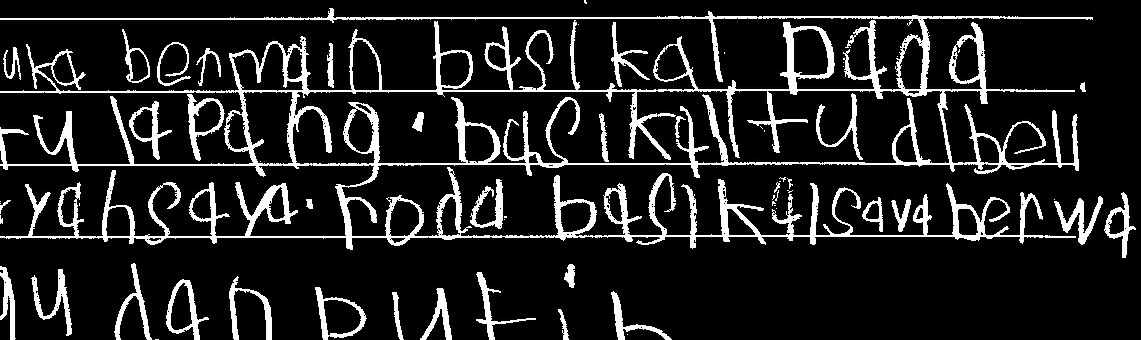 uka bermain basikal pada
tu lapang. basikal itu dibeli
yah saya. roda basikal saya berwa
gu dan putih